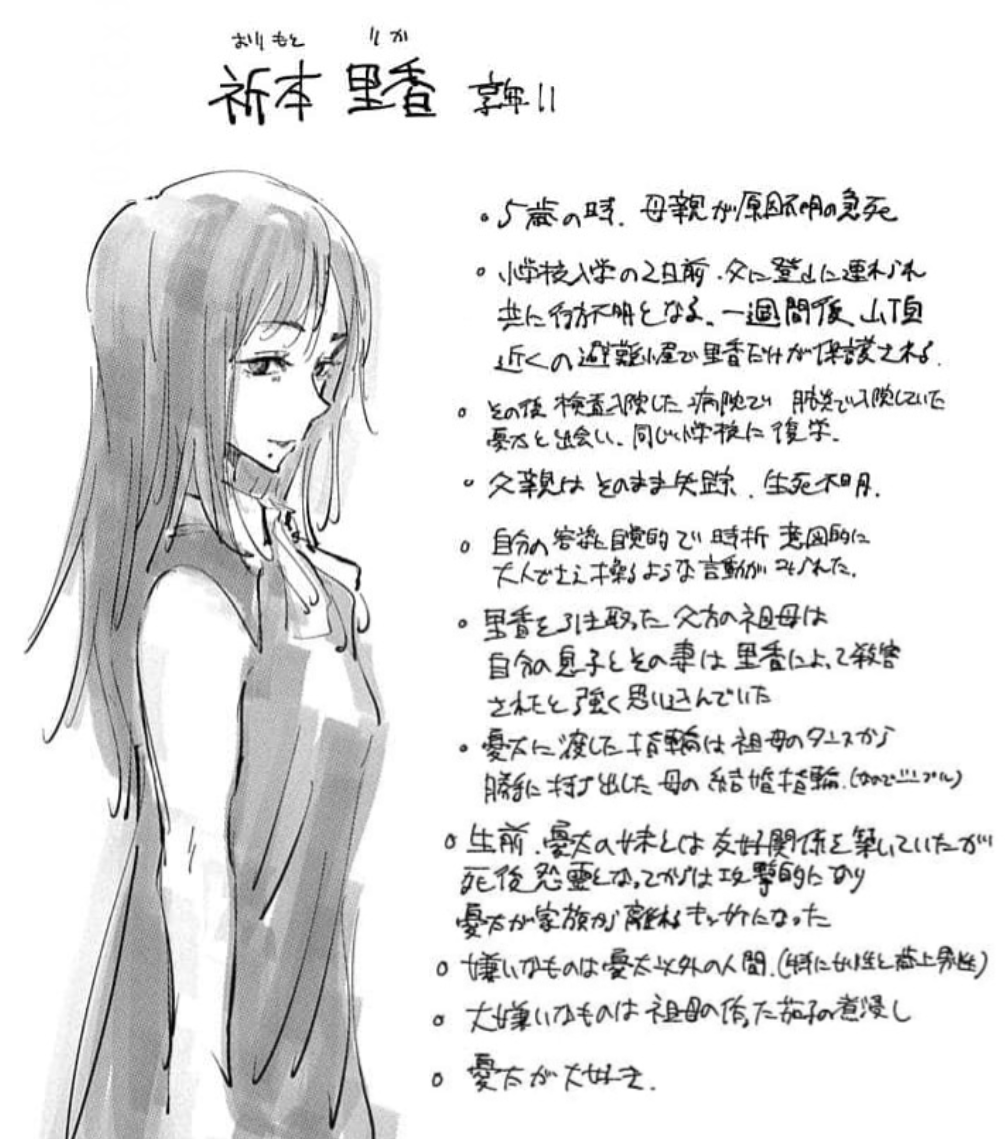 おりもと りか
祈本 里香 享年11
・5歳の時、母親が原因不明の急死
・小学校入学の2日前、父に登山に連れられ
共に行方不明となる、一週間後、山頂
近くの避難小屋で里香だけが保護される。
・その後 検査入院した病院で 肺炎で入院していた
憂太と出会い、同じ小学校に復学。
・父親はそのまま失踪、生死不明。
・自分の容姿に自覚的で 時折 意図的に
大人でさえ操るような言動がみられた。
・里香を引き取った父方の祖母は
自分の息子とその妻は里香によって殺害
されたと強く思い込んでいた
・憂太に渡した指輪は祖母のタンスから
勝手に持ち出した母の結婚指輪。(なのでシンプル)
・生前、憂太の妹とは友好関係を築いていたが
死後 怨霊となってからは攻撃的になり
憂太が家族から離れるキッカケになった
・嫌いなものは憂太以外の人間。(特に女性と歳上男性)
・大嫌いなものは祖母の作った茄子の煮浸し
・憂太が大好き。